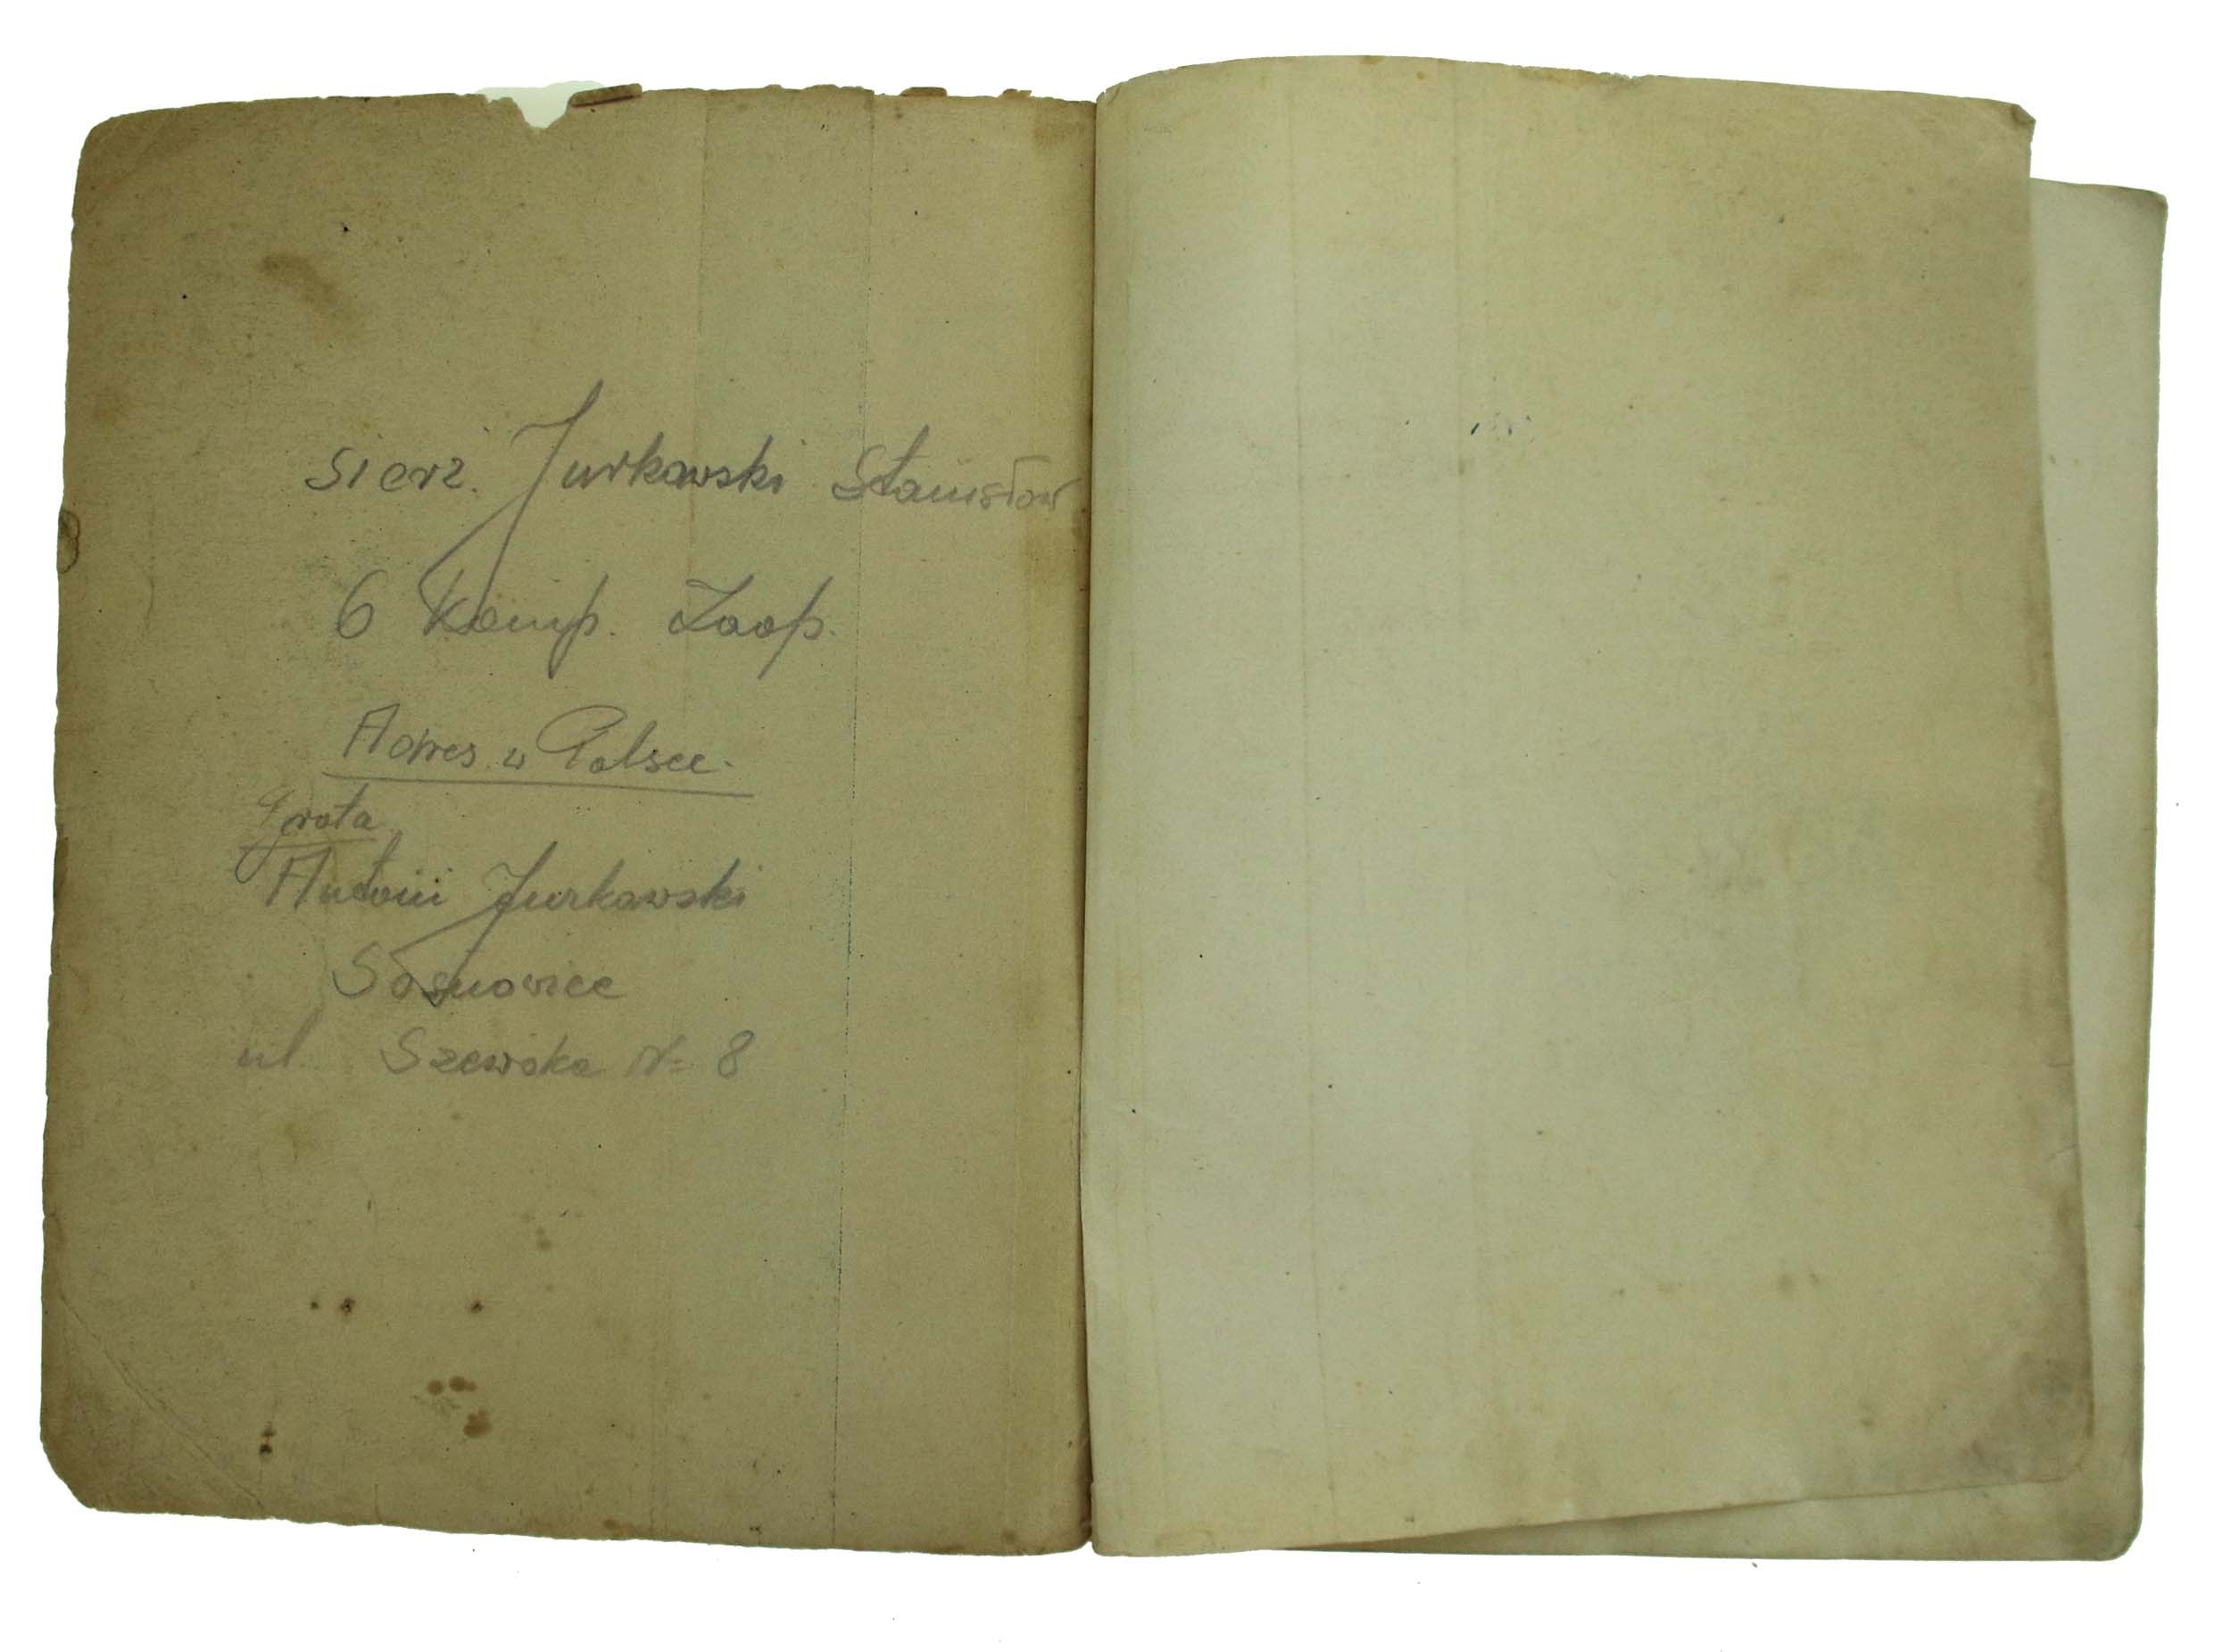 sierż. Jurkowski Stanisław
6 Komp. Zaop.
Adres w Polsce.
Grota
Antoni Jurkowski
Sosnowiec
ul. Szewska № 8